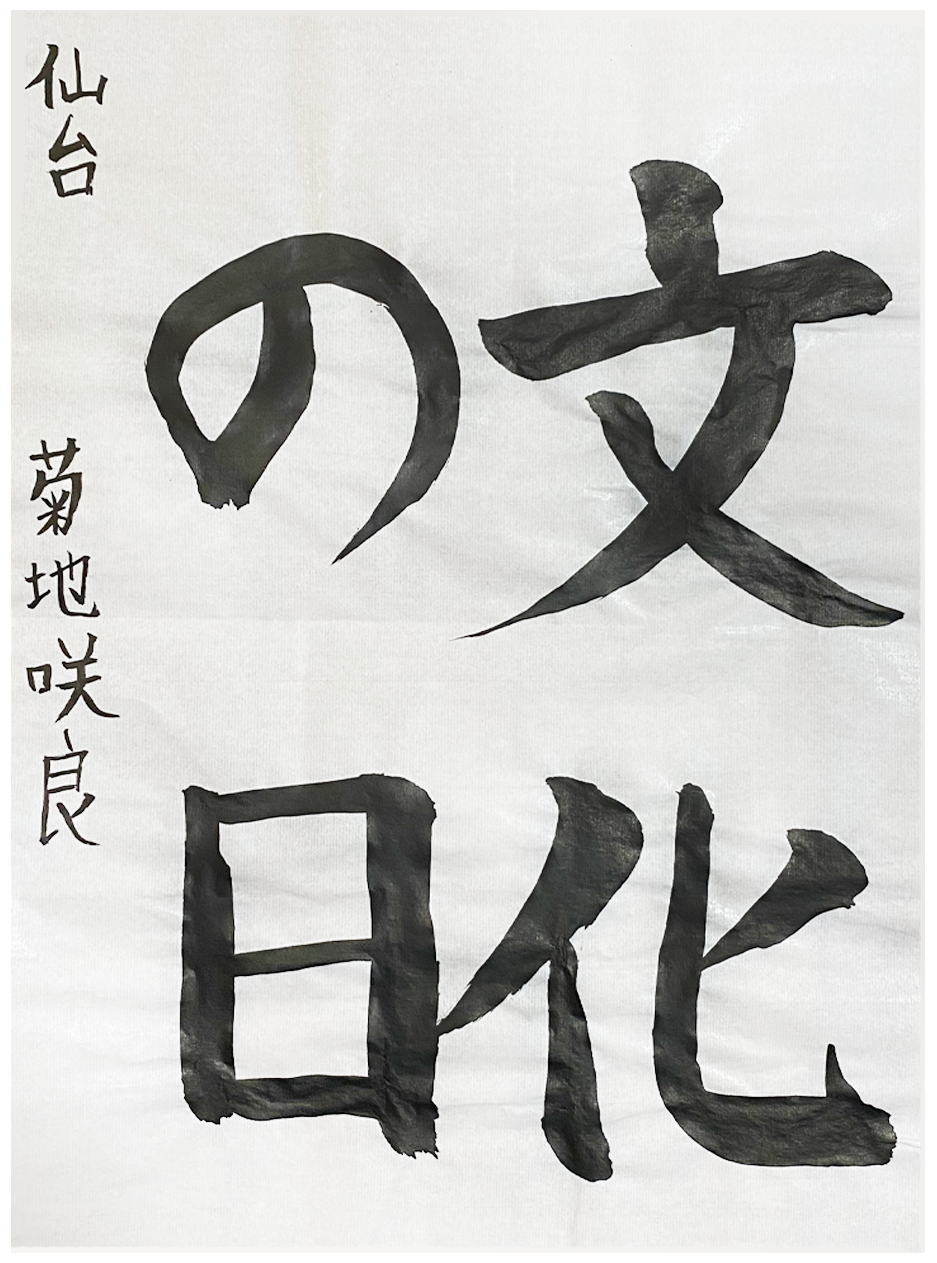 文化
の日
仙台 菊地咲良